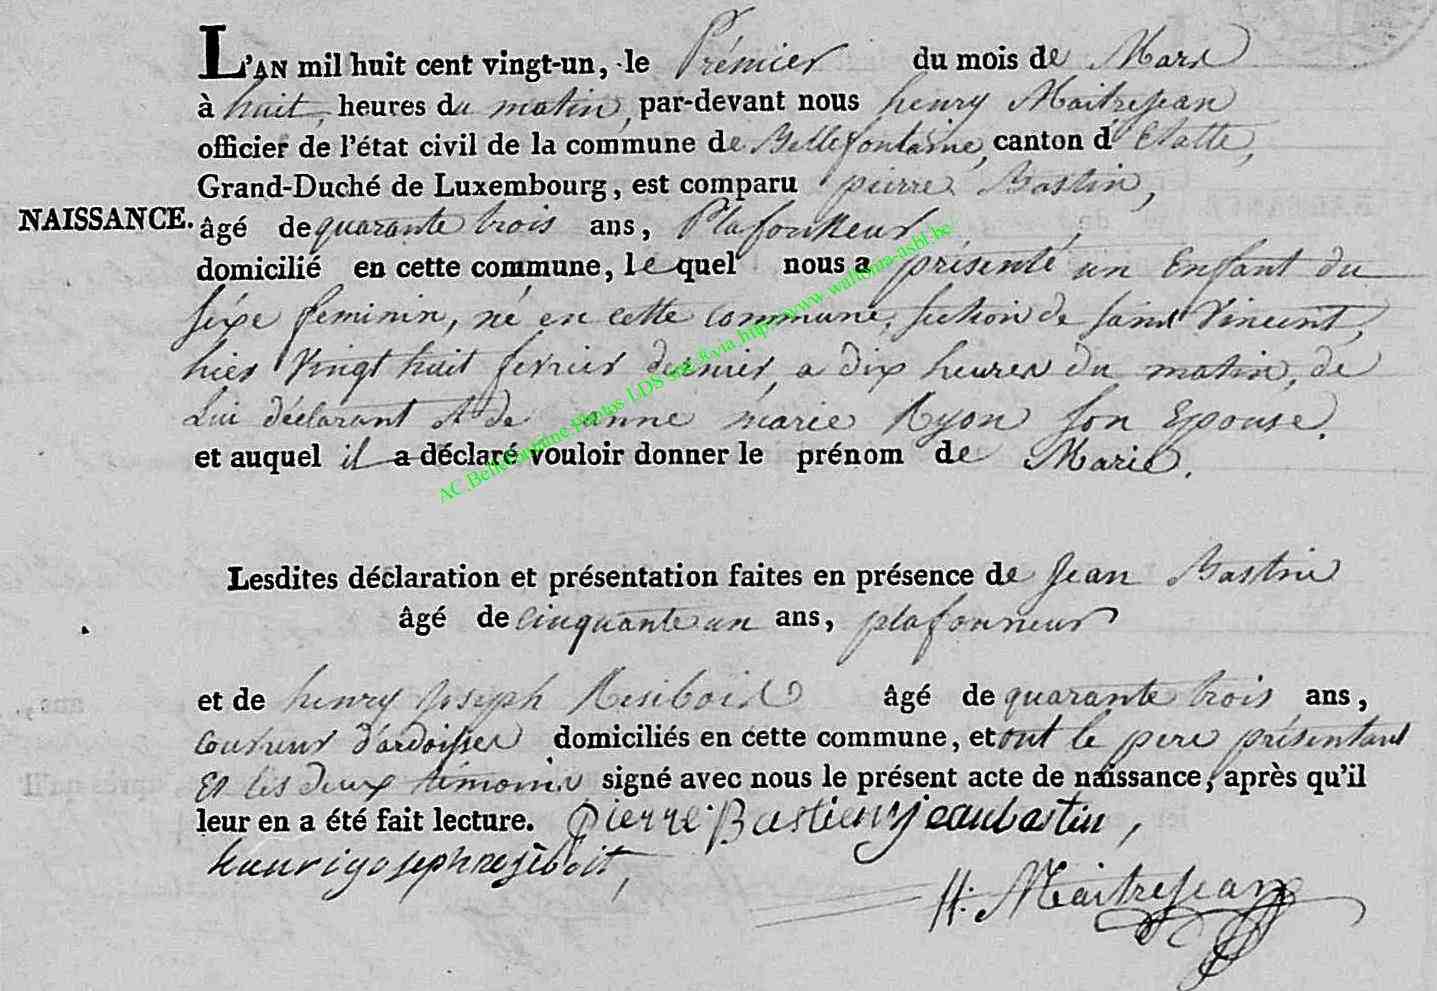 L'AN mil huit cent vingt-un, le Prémier du mois de Mars
à huit heures du matin, par-devant nous henry Maitrejean
officier de l'état civil de la commune de Bellefontaine, canton d'Etalle,
Grand-Duché de Luxembourg, est comparu pierre Bastin,
NAISSANCE. âgé de quarante trois ans, Plafonneur
domicilié en cette commune, lequel nous a présenté un Enfant du
séxe feminin, né en cette commune, section de saint Vincent,
hier vingt huit fevrier dernier, a dix heures du matin, de
Lui déclarant et de anne marie Ryon son Epouse.
et auquel il a déclaré vouloir donner le prénom de Marie.
Lesdites déclaration et présentation faites en présence de Jean Bastin
âgé de cinquante un ans, plafonneur
et de henry Joseph Resiboit âgé de quarante trois ans,
couvreur d'ardoises domiciliés en cette commune, et ont le pere présentant
Et les deux témoins signé avec nous le présent acte de naissance, après qu'il
leur en a été fait lecture. pierre Bastien jeanbastin,
henrijosephresiboit,
H. Maitrejean